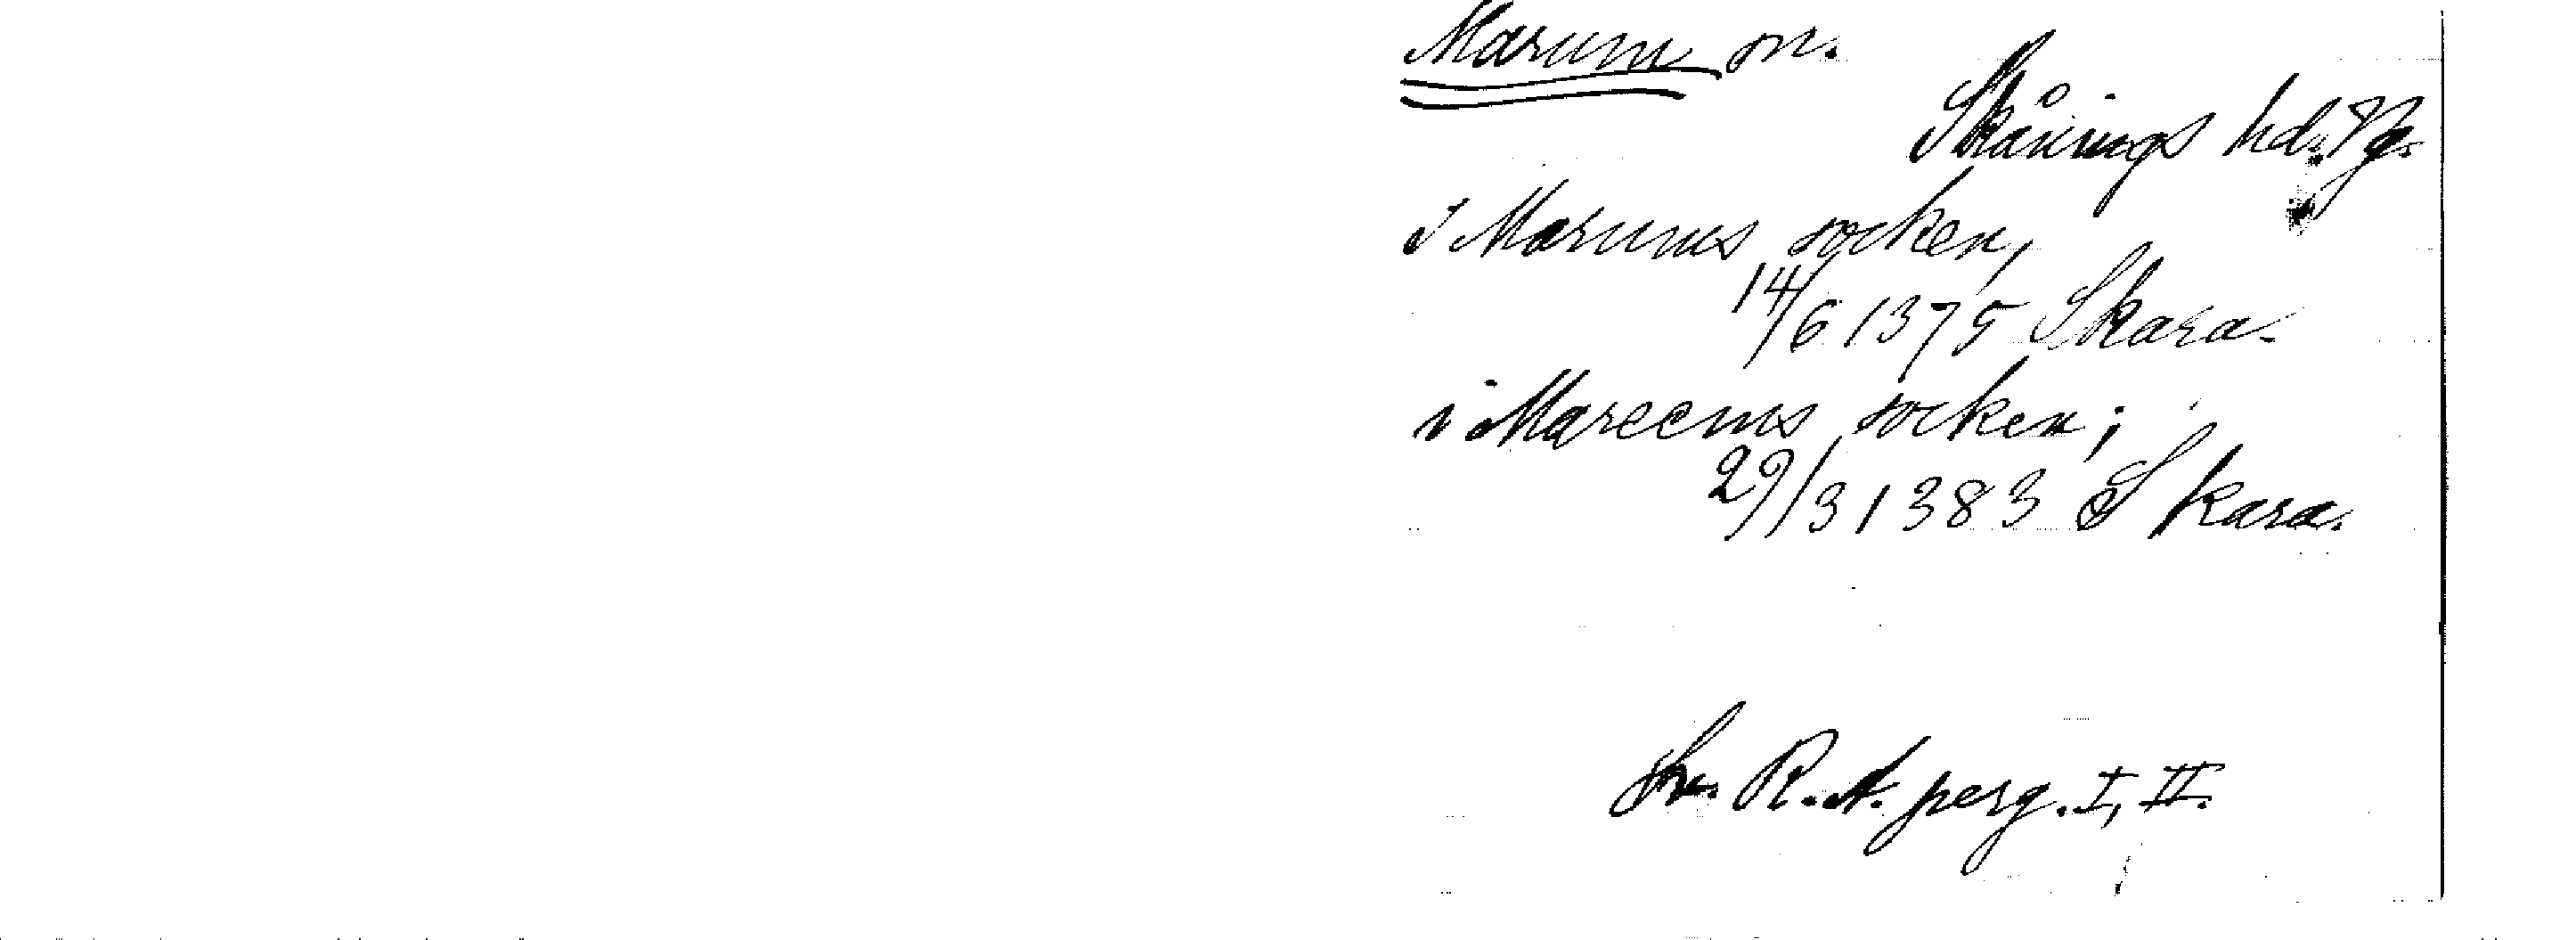 Marum sn.
Skånings hd. Vg.
I Marums socken,
14/6 1375 Skara.
i Mareems socken;
29/3 1383 Skara.
Sv. R. A. perg. I, II.